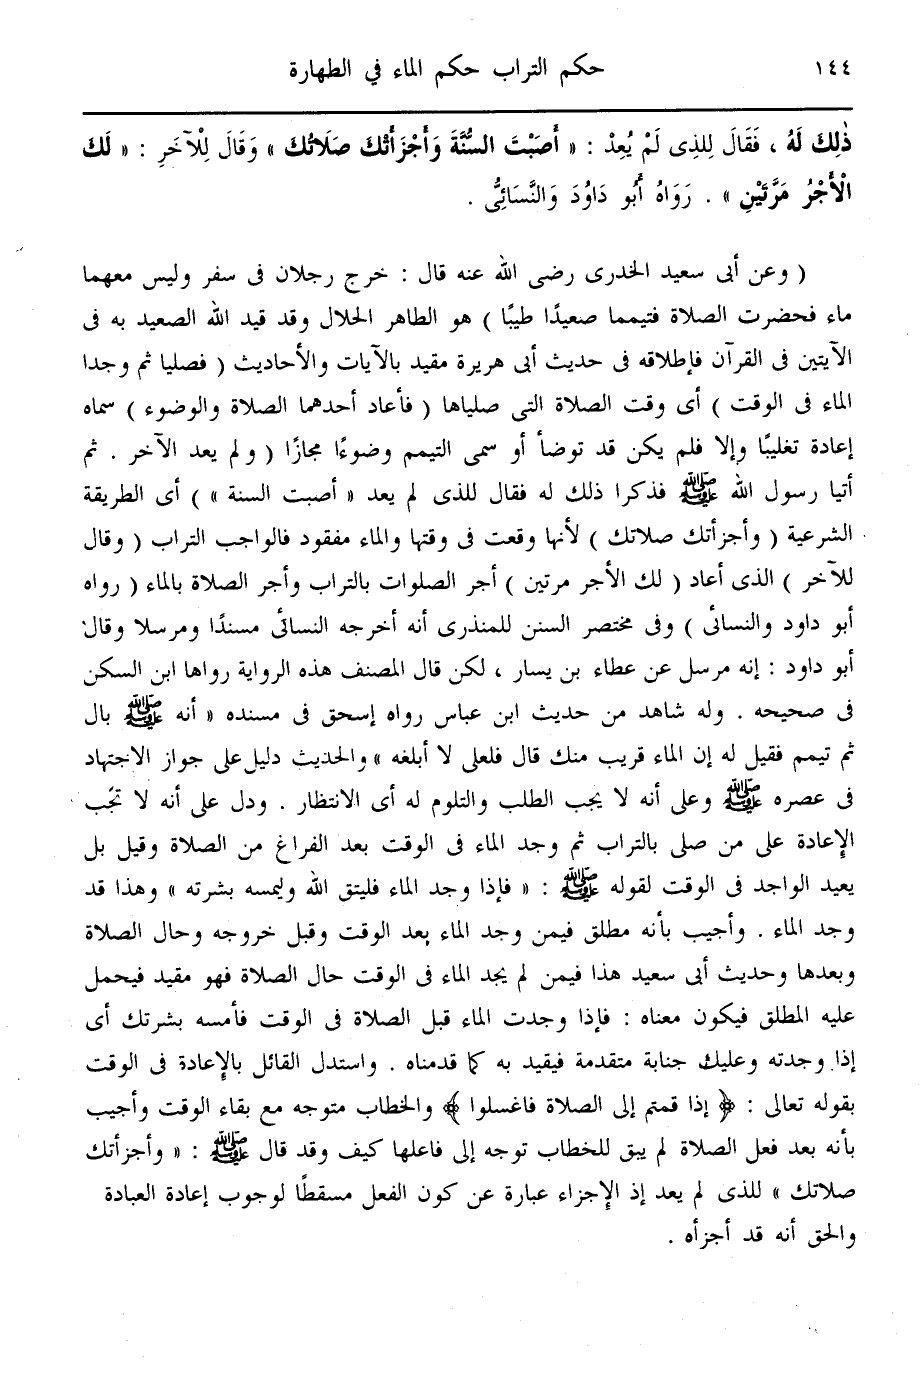 ١٤٤ حكم التراب حكم الماء في الطهارة
ذٰلِكَ لَهُ ، فَقَالَ لِلذِى لَمْ يُعِدْ : « أَصَبْتَ السُّنَّةَ وَأَجْزَأَتْكَ صَلَاتُكَ » وَقَالَ لِلْآخَرِ : « لَكَ
الْأَجْرُ مَرَّتَيْنِ » . رَوَاهُ أَبُو دَاوُدَ وَالنَّسَائِىُّ .
( وعن أبى سعيد الخدرى رضى الله عنه قال : خرج رجلان فى سفر وليس معهما
ماء فحضرت الصلاة فتيمما صعيدًا طيبًا ) هو الطاهر الحلال وقد قيد الله الصعيد به فى
الآيتين فى القرآن فإطلاقه فى حديث أبى هريرة مقيد بالآيات والأحاديث ( فصليا ثم وجدا
الماء فى الوقت ) أى وقت الصلاة التى صلياها ( فأعاد أحدهما الصلاة والوضوء ) سماه
إعادة تغليبًا وإلا فلم يكن قد توضأ أو سمى التيمم وضوءًا مجازًا ( ولم يعد الآخر . ثم
أتيا رسول الله ﷺ فذكرا ذلك له فقال للذى لم يعد « أصبت السنة » ) أى الطريقة
الشرعية ( وأجزأتك صلاتك ) لأنها وقعت فى وقتها والماء مفقود فالواجب التراب ( وقال
للآخر ) الذى أعاد ( لك الأجر مرتين ) أجر الصلوات بالتراب وأجر الصلاة بالماء ( رواه
أبو داود والنسائى ) وفى مختصر السنن للمنذرى أنه أخرجه النسائى مسندًا ومرسلا وقال
أبو داود : إنه مرسل عن عطاء بن يسار ، لكن قال المصنف هذه الرواية رواها ابن السكن
فى صحيحه . وله شاهد من حديث ابن عباس رواه إسحق فى مسنده « أنه ﷺ بال
ثم تيمم فقيل له إن الماء قريب منك قال فلعلى لا أبلغه » والحديث دليل على جواز الاجتهاد
فى عصره ﷺ وعلى أنه لا يجب الطلب والتلوم له أى الانتظار . ودل على أنه لا تجب
الإعادة على من صلى بالتراب ثم وجد الماء فى الوقت بعد الفراغ من الصلاة وقيل بل
يعيد الواجد فى الوقت لقوله ﷺ : « فإذا وجد الماء فليتق الله وليمسه بشرته » وهذا قد
وجد الماء . وأجيب بأنه مطلق فيمن وجد الماء بعد الوقت وقبل خروجه وحال الصلاة
وبعدها وحديث أبى سعيد هذا فيمن لم يجد الماء فى الوقت حال الصلاة فهو مقيد فيحمل
عليه المطلق فيكون معناه : فإذا وجدت الماء قبل الصلاة فى الوقت فأمسه بشرتك أى
إذا وجدته وعليك جنابة متقدمة فيقيد به كما قدمناه . واستدل القائل بالإعادة فى الوقت
بقوله تعالى : ﴿ إذا قمتم إلى الصلاة فاغسلوا ﴾ والخطاب متوجه مع بقاء الوقت وأجيب
بأنه بعد فعل الصلاة لم يبق للخطاب توجه إلى فاعلها كيف وقد قال ﷺ : « وأجزأتك
صلاتك » للذى لم يعد إذ الإجزاء عبارة عن كون الفعل مسقطًا لوجوب إعادة العبادة
والحق أنه قد أجزأه .